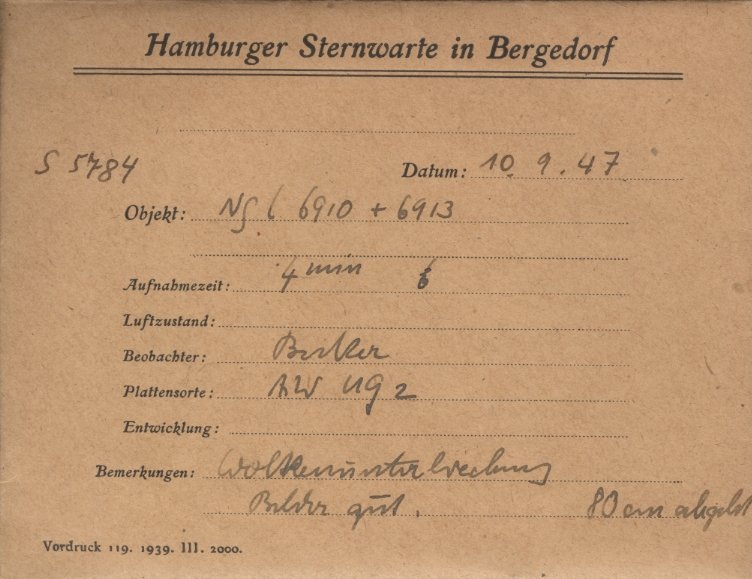 Hamburger Sternwarte in Bergedorf
S 5784
Datum: 10. 9. 47
Objekt: NGC 6910 + 6913
Aufnahmezeit: 4 min
Luftzustand:
Beobachter: Becker
Plattensorte: AW UG 2
Entwicklung:
Bemerkungen: Wolkenunterbrechung
Bilder gut. 80 cm
Vordruck 119. 1939. III. 2000.